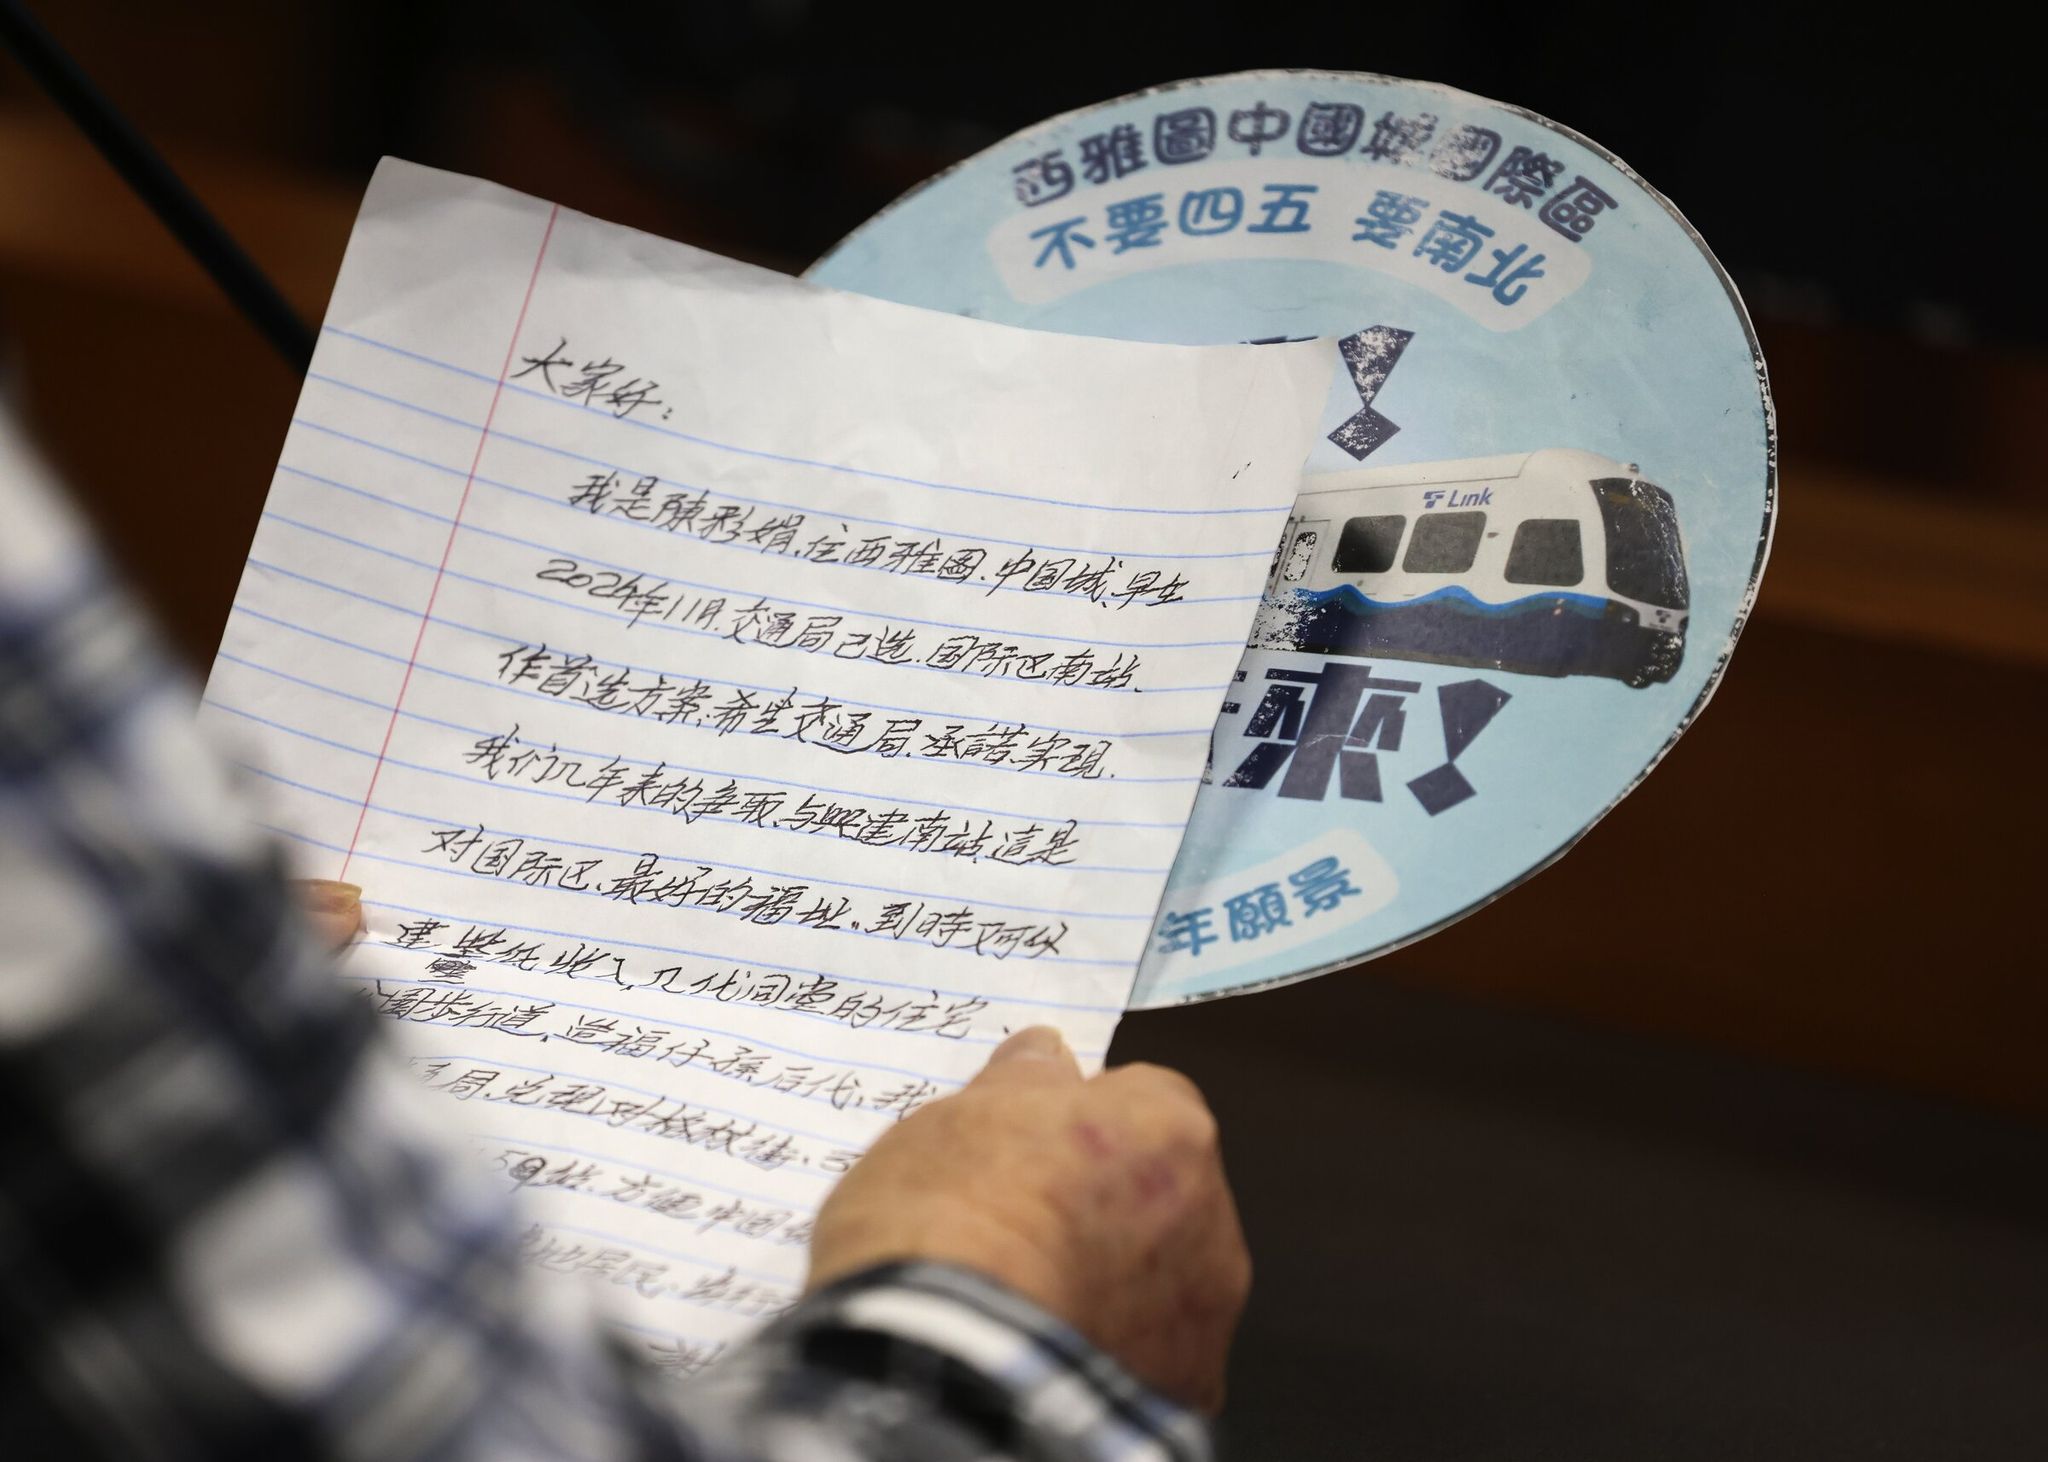 西雅圖中國城國際區
不要四五 要南北
!
Link
來!
年願景
大家好:
我是陳彩娟.住西雅圖.中国城.早在
2024年11月.交通局已选.国际区南站.
作首选方案.希望交通局.承諾.实现.
我们几年来的争取.与興建南站.這是
对国际区、最好的福址..到時又可以
建 些低收入.几代同堂的住宅、
公園步行道、造福仔孫后代、我
局.兑现、对
站.方便中国城
居民.
谢